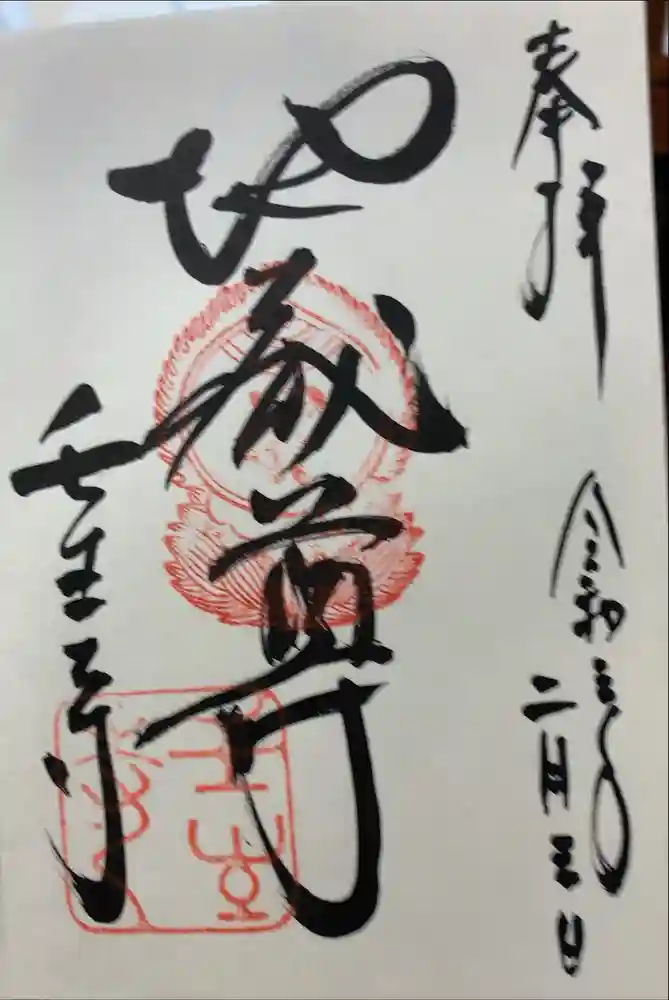 奉拝
令和三年
二月三日
地蔵尊
壬生寺